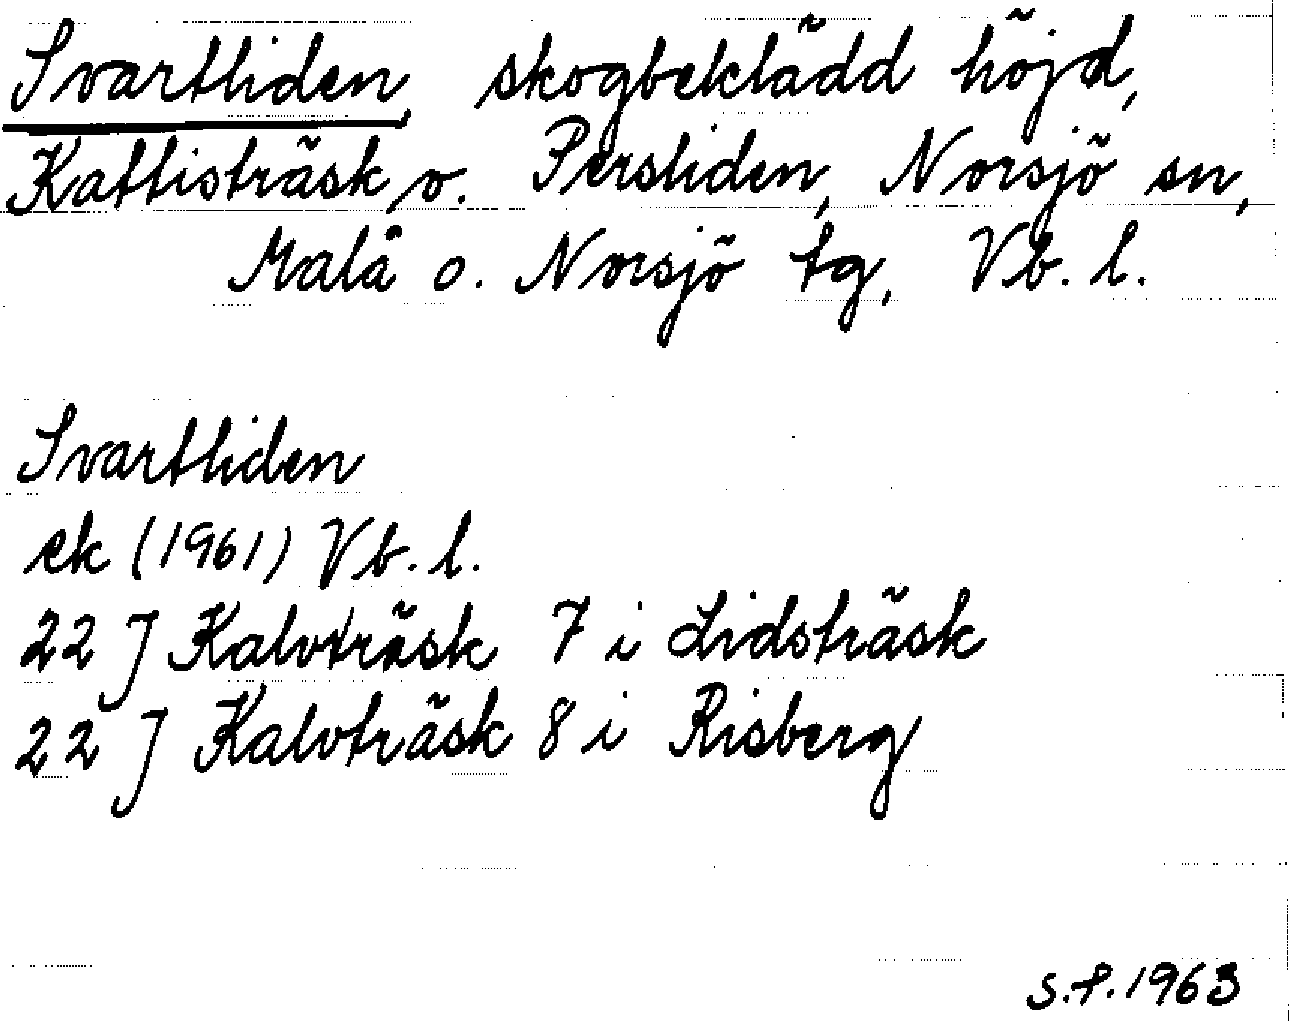 Svartliden, skogbeklädd höjd,
Kattisträsk o. Persliden, Norsjö sn,
Malå o. Norsjö tg, Vb. l.
Svartliden
ek (1961) Vb. l.
22 J Kalvträsk 7 i Lidsträsk
22 J Kalvträsk 8 i Risberg
S.F. 1963